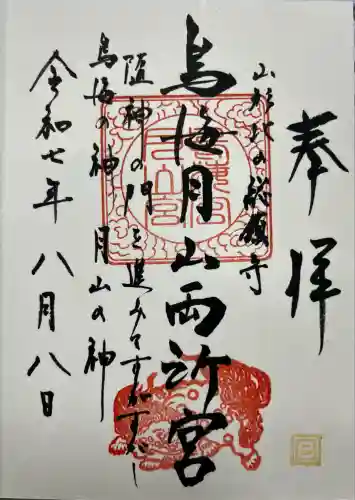 奉拝
山形北の総鎮守
鳥海月山両所宮
随神の門を進みてすがすがし
鳥海の神 月山の神
令和七年八月八日